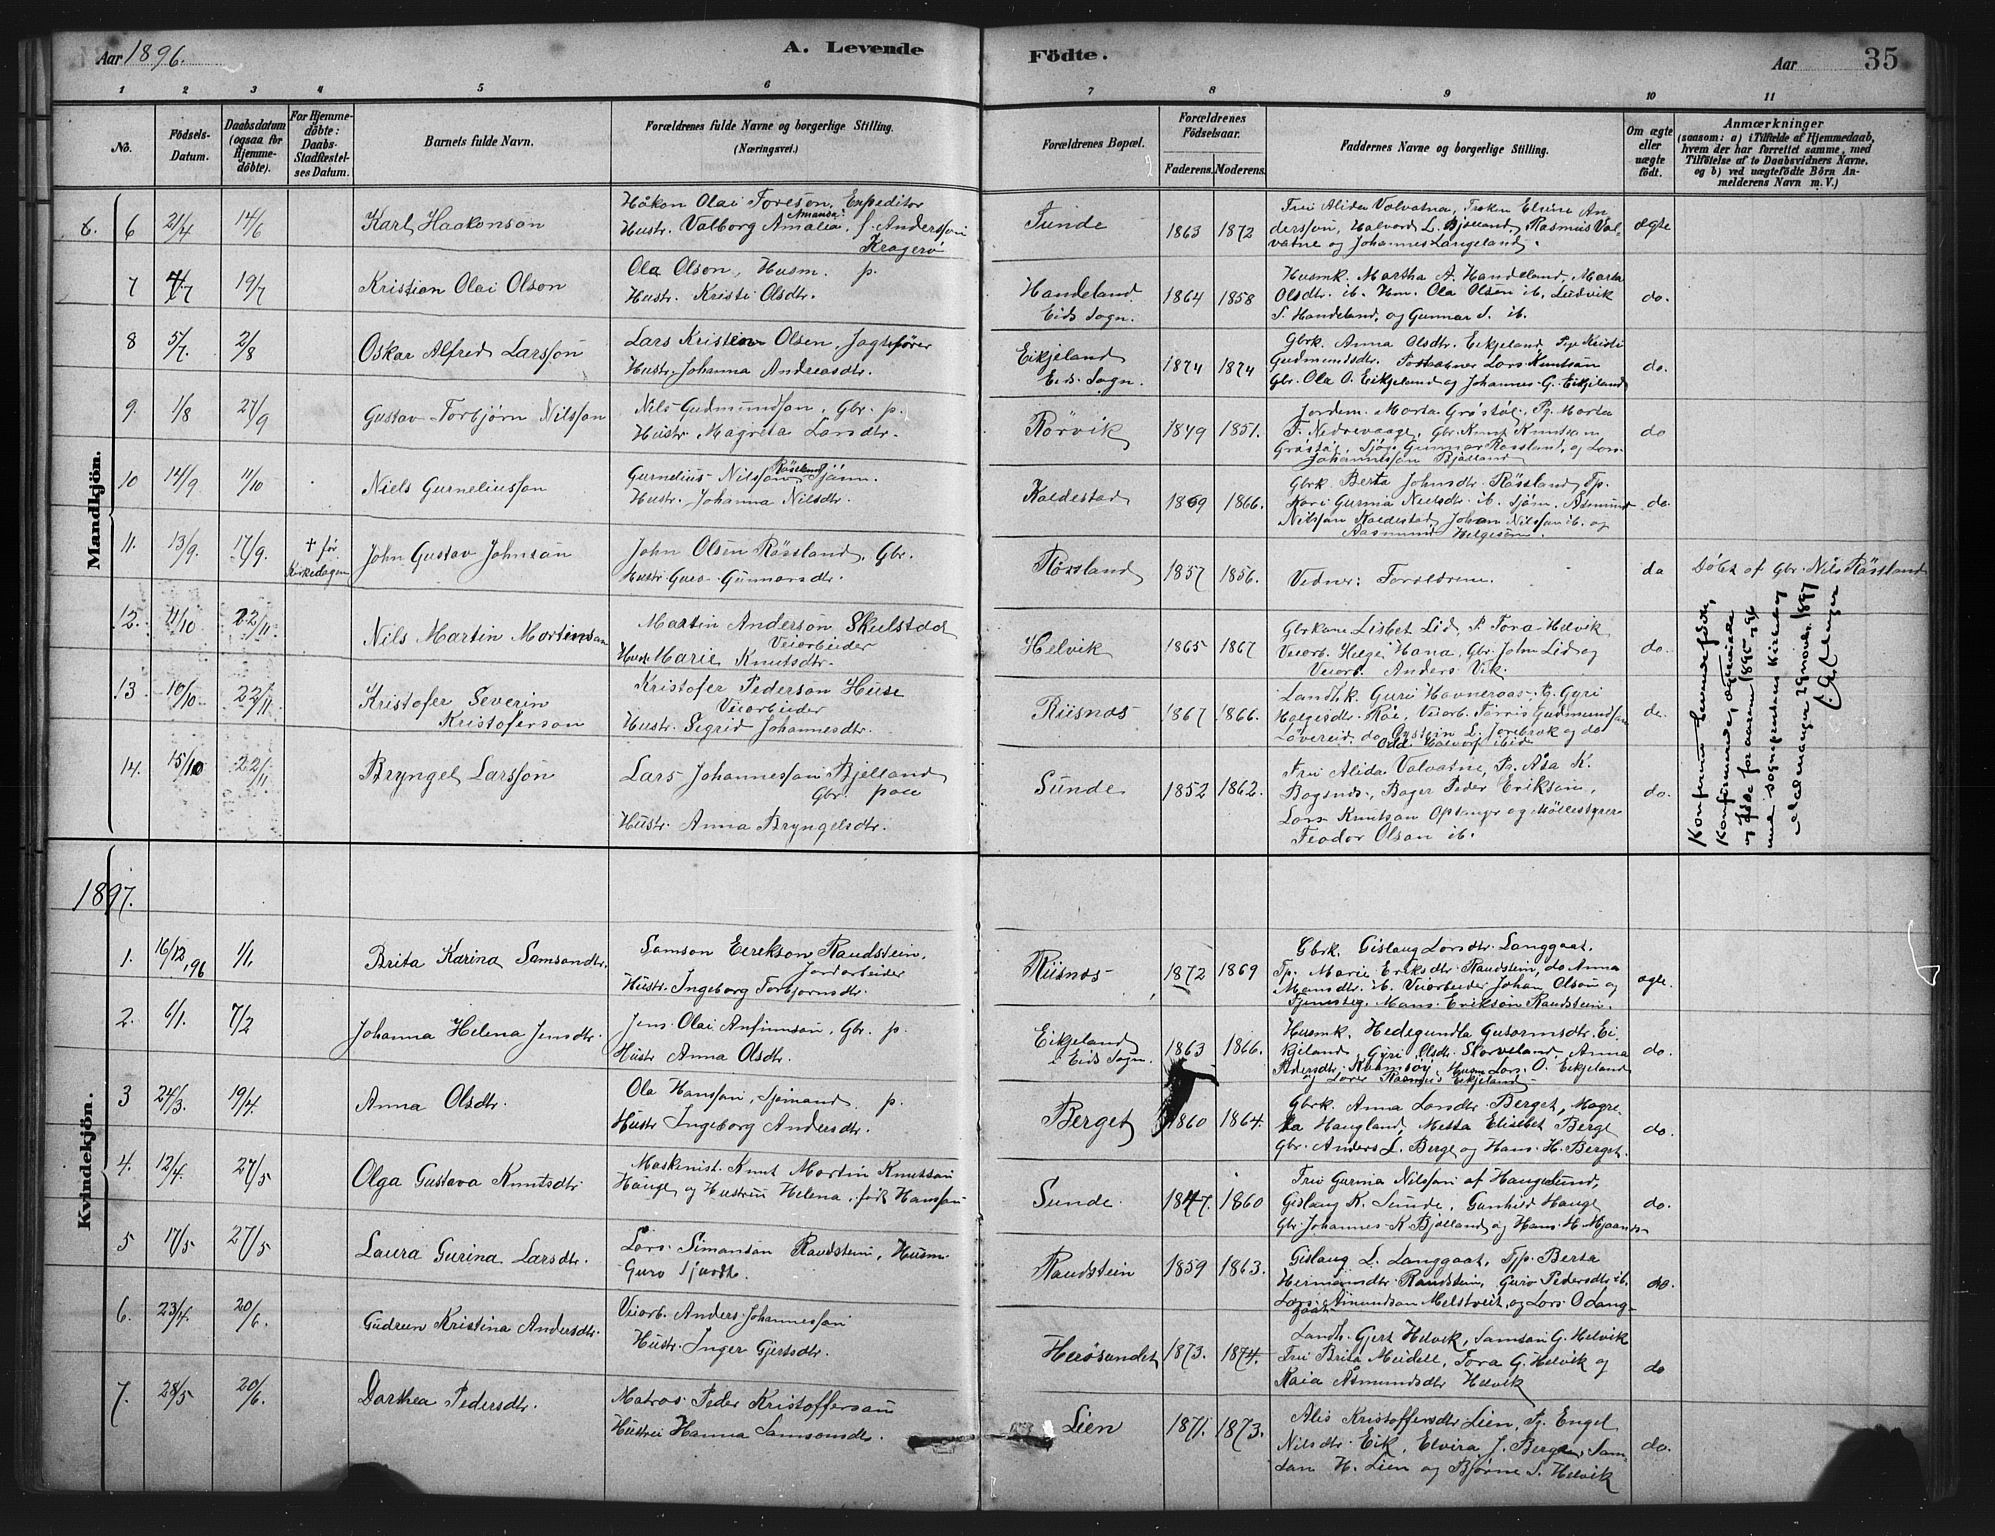 Aar 1896.
A. Levende
Födte.
Aar
35
1 2 3 4 5 6 7 8 9 10 11
No.
Födsels-
Datum.
Daabsdatum
(ogsaa för
Hjemme-
döbte).
For Hjemme-
döbte:
Daabs-
Stadfæstel-
ses Datum.
Barnets fulde Navn.
Forældrenes fulde Navne og borgerlige Stilling.
(Næringsvei.)
Forældrenes Bopæl.
Forældrenes
Födselsaar.
Faderens. Moderens.
Faddernes Navne og borgerlige Stilling.
Om ægte
eller
uægte
födt.
Anmærkninger
(saasom: a) i Tilfælde af Hjemmedaab,
hvem der har forrettet samme, med
Tilföielse af to Daabsvidners Navne,
og b) ved uægtefödte Börn An-
melderens Navn m. V.)
Mandkjön.
6 21/4 14/6
Karl Haakonson
Håkon Olai Toreson, Expeditor
Amanda
Hustr. Valborg Amalia, f. Anderssen
Kragerö
Sunde
1863 1872
Fru Alida Valvatne, Frøken Elsine An-
derssen, Halvord L. Bjelland, Rasmus Val-
vatne og Johannes Langeland.
ægte
7 4/7 19/7
Kristian Olai Olson
Ola Olson, Husm. p.
Hustr. Kristi Olsdtr.
Handeland
Eids Sogn.
1864 1858
Husmk. Martha A. Handeland, Marta
Olsdtr. ib. Hm. Ola Olsen ib. Ludvik
S. Handeland, og Gunnar S. ib.
do.
8 5/7. 2/8
Oskar Alfred Larsson
Lars Kristian Olsen, Jagtefører
Hustr. Johanna Andreasdtr.
Eikjeland
Eids Sogn.
1874 1874
Gbrk. Anna Olsdtr. Eikjeland Pige Kristi
Gudmundsdtr. Lars Knutson
Gbr. Ola O. Eikjeland og Johannes G. Eikjeland
do.
9. 1/8 27/9
Gustav Torbjørn Nilsson
Nils Gudmundson, Gbr. p.
Hustr. Magreta Larsdtr.
Rørvik
1849 1851.
Jordem. Marta Grøstøl, Pg. Marta
T. Nedrevaage, Gbr. Knut Knutson
Grøstøl, Sjøg. Gunnar Røssland, og Lars
Johannesson Bjelland
do
10 14/9 11/10
Niels Gurneliusson
Røssland
Gurnelius Nilsson Sjøm.
Hustr. Johanna Nilsdtr.
Kaldestad
1869 1866.
Gbrk. Berta Johnsdtr. Røssland Tp.
Kari Gurina Nielsdtr. ib. Sjøm. Asmund
Nilsson Kaldestad, Johan Nilsson ib. og
Aasmund Helgesen.
do
11. 13/9. 17/9.
† før
Kirkedagen
John Gustav Johnson
John Olsen Røssland, Gbr.
Hustr. Guro Gunnarsdtr.
Røssland
1857 1856.
Vidner: Foreldrene.
do
Døbt af Gbr. Nils Røssland
12. 11/10 22/11
Nils Martin Martinson
Martin Anderson Skulstad
Veiarbeider
Hust. Marie Knutsdtr.
Helvik
1865 1867
Gbrkone Lisbet Lid, P. Tora Helvik
Veiarb. Helge Hana, Gbr. John Lid og
Veiarb. Anders Vik.
do.
13 10/10 22/11.
Kristofer Severin
Kristoferson
Kristofer Pederson Huse
Veiarbeider
Hustr. Sigrid Johannesdtr.
Riisnes
1867 1866.
Landh.k. Guri Havneraas P. Gyri
Helgesdtr. Röe, Veiarb. Torris Gudmundson
Løvereid, do Øystein L. Jørebrok og do
Odd Halvors ibid
do.
14. 15/10 22/11
Bryngel Larsson
Lars Johannesson Bjelland
Gbr. paa
Hustr. Anna Bryngelsdtr.
Sunde
1852 1862.
Frui Alida Valvatne, Pg. Åsa K.
Bogsnes, Bager Peder Erikson,
Lars Knutson Opsanger og Møllestyrer
Teodor Olson ib.
do.
Konfereret Levendefødte,
Konfirmerede, Ægteviede
og døde for aarene 1895 og 96
med sogneprestens Kirkebog
Malmanger 29 novbr. 1897
1897.
Kvindekjön.
1. 16/12,96 1/1.
Brita Karina Samsondtr.
Samson Eerikson Raudstein,
Jordarbeider
Hustr. Ingeborg Torbjørnsdtr.
Riisnes
1872 1869
Gbrk. Gislaug Larsdtr. Langgaat,
Tp. Marie Eriksdtr. Raudstein, do Anna
Monsdtr. ib. Veiarbeider Johan Olson og
Tjenestg. Mons Erikson Raudstein.
ægte.
2. 6/1. 7/2
Johanna Helena Jensdtr.
Jens Olai Anfinnson, Gbr. p.
Hustr. Anna Olsdtr.
Eikjeland
i Eids Sogn.
1863 1866.
Husmk. Hedegundla Gutormsdtr. Ei-
kjeland, Gyri Olsdtr. Skorveland, Anna
Pedersdtr. Husm. Lars O. Eikjeland
og Rasmus Eikjeland
do.
3 24/3. 19/4.
Anna Olsdtr.
Ola Hansson, Sjømand p.
Hustr. Ingeborg Andersdtr.
Berget
1860 1864.
Gbrk. Anna Larsdtr. Berget, Magre-
ta Haugland, Metta Elisebet Berge
Gbr. Anders L. Berge og Hans H. Berget.
do.
4. 12/4. 27/5
Olga Gustava Knutsdtr.
Maskenist Knut Martin Knutson
Hauge og Hustrui Helena, født Hansson
Sunde.
1847. 1860
Frui Gurina Nilsson af Haugesund,
Gislaug K. Sunde, Gunhild Hauge
Gbr. Johannes K. Bjelland og Hans H. Mjaanes
do.
5 17/5 27/5
Laura Gurina Larsdtr.
Lars Simonson Raudstein, Husm.
Guro Sjurdt.
Raudstein
1859 1863.
Gislaug L. Langgaat, Tjp. Berta
Hermundtr. Raudstein, Guro Pedersdtr. ib.
Lars Amundson Melstveit, og Lars O Lang-
gaat
do.
6. 23/4. 20/6.
Gudrun Kristina Andersdtr.
Veiarb. Anders Johannesson
Hustr. Inger Gjertsdtr.
Herøsundet
1873. 1874.
Landh. Gjert Helvik, Samson G. Helvik
Frui Brita Meidell, Tora G. Helvik og
Kaia Åsmundsdtr Helvik
do
7. 28/5 20/6.
Darthea Pedersdtr.
Matros Peder Kristofferson
Hustrui Hanna Samsonsdtr.
Lien
1871. 1873.
Alis Kristoffersdtr Lien, Pg. Engel
Nilsdtr. Eik, Elvira J. Berge, Sam-
son H. Lien og Bjørne S. Helvik
do.